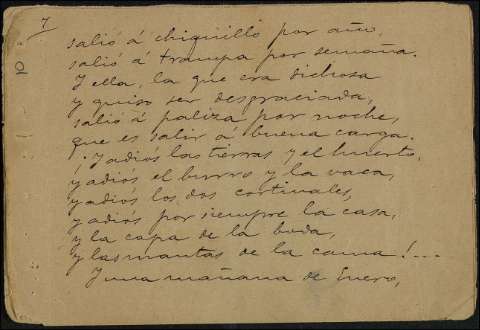 7
salió á chiquillo por año,
salió á trampa por semana.
Y ella, la que era dichosa
y quiso ser desgraciada,
salió á paliza por noche,
que es salir á buena carga.
¡Y adiós las tierras y el huerto,
y adiós el burro y la vaca,
y adiós los dos cortinales,
y adiós por siempre la casa,
y la capa de la boda,
y las mantas de la cama!...
Y una mañana de Enero,